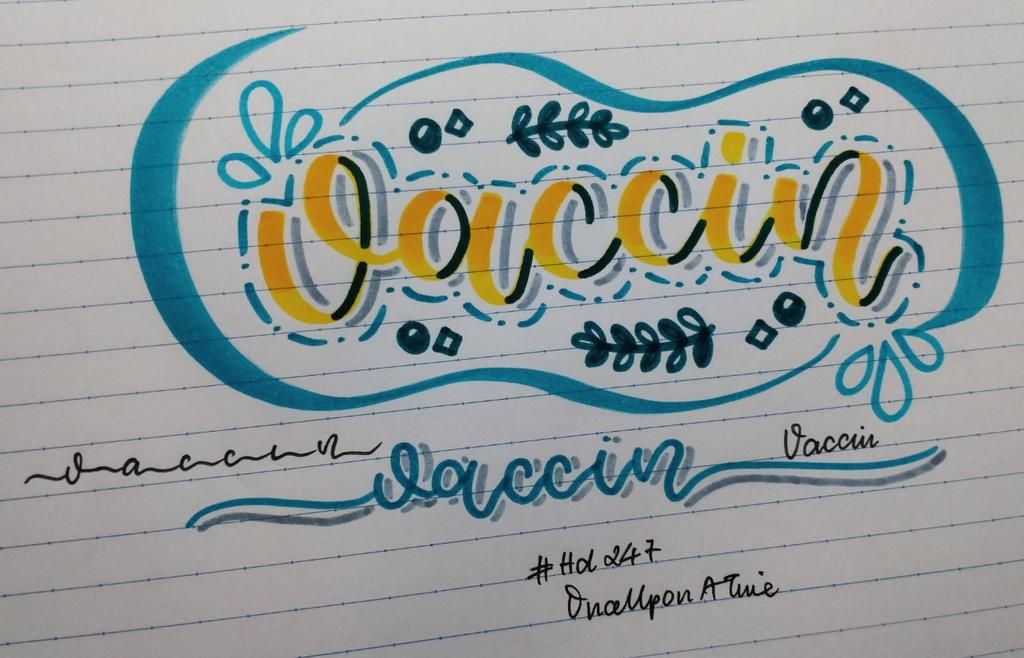 Vaccin
vaccin
vaccin
Vaccin
#Hd 247
OnceUpon A Time